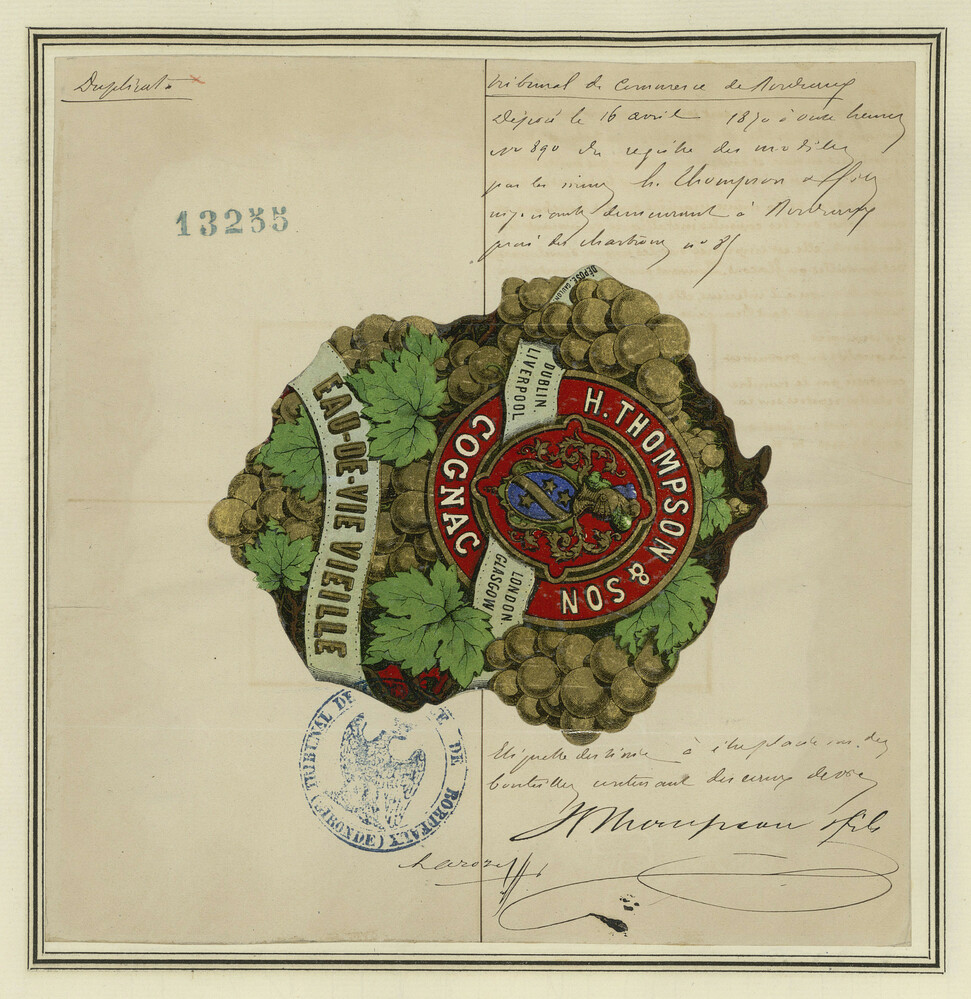 Duplicata
13255
Tribunal de Commerce de Bordeaux
Déposé le 16 avril 1870 à onze heures
No 890 du registre des modèles
par les sieurs H. Thompson & fils
négociants demeurant à Bordeaux
quai des chartrons no 85
DÉPOSÉ. GAULON
DUBLIN.
LIVERPOOL
EAU-DE-VIE VIEILLE
H. THOMPSON & SON
COGNAC
LONDON
GLASGOW
TRIBUNAL DE DE BORDEAUX (GIRONDE)
Etiquette destinée à être placée sur des
bouteilles contenant des eaux de vie
H Thompson & fils